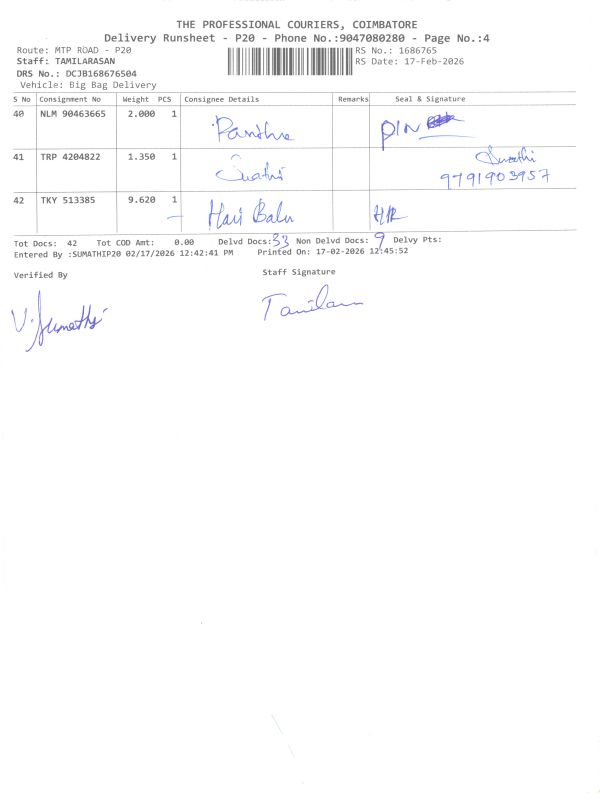 THE PROFESSIONAL COURIERS, COIMBATORE
Delivery Runsheet - P20 - Phone No.:9047080280 - Page No.:4
Route: MTP ROAD - P20 RS No.: 1686765
Staff: TAMILARASAN RS Date: 17-Feb-2026
DRS No.: DCJB168676504
Vehicle: Big Bag Delivery
S No Consignment No Weight PCS Consignee Details Remarks Seal & Signature
40 NLM 90463665 2.000 1
41 TRP 4204822 1.350 1 Sumathi
9791903957
42 TKY 513385 9.620 1 Hari Balu
Tot Docs: 42 Tot COD Amt: 0.00 Delvd Docs: 33 Non Delvd Docs: 9 Delvy Pts:
Entered By :SUMATHIP20 02/17/2026 12:42:41 PM Printed On: 17-02-2026 12:45:52
Verified By Staff Signature
V. Sumathi